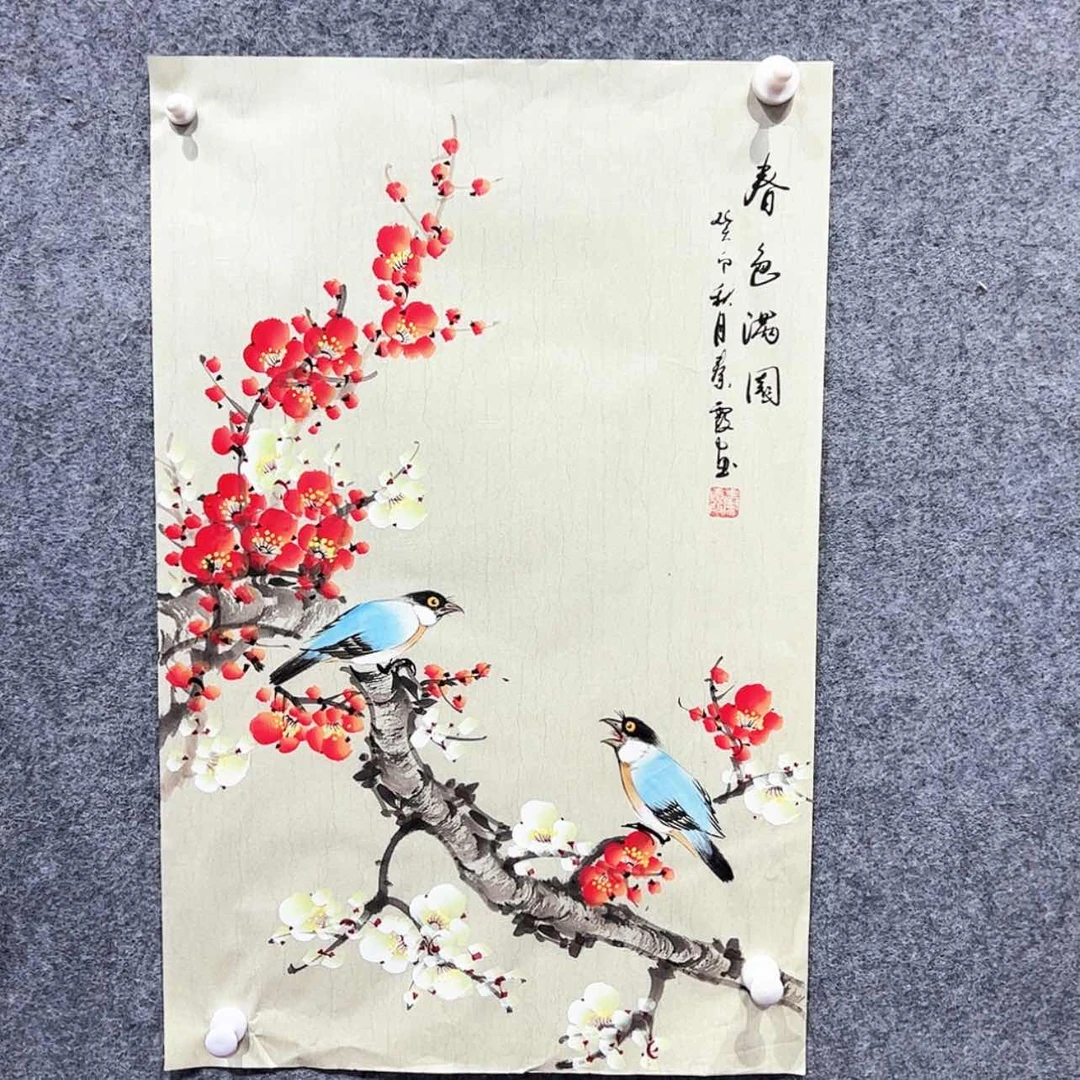 春色满園
癸卯秋月秦霞画